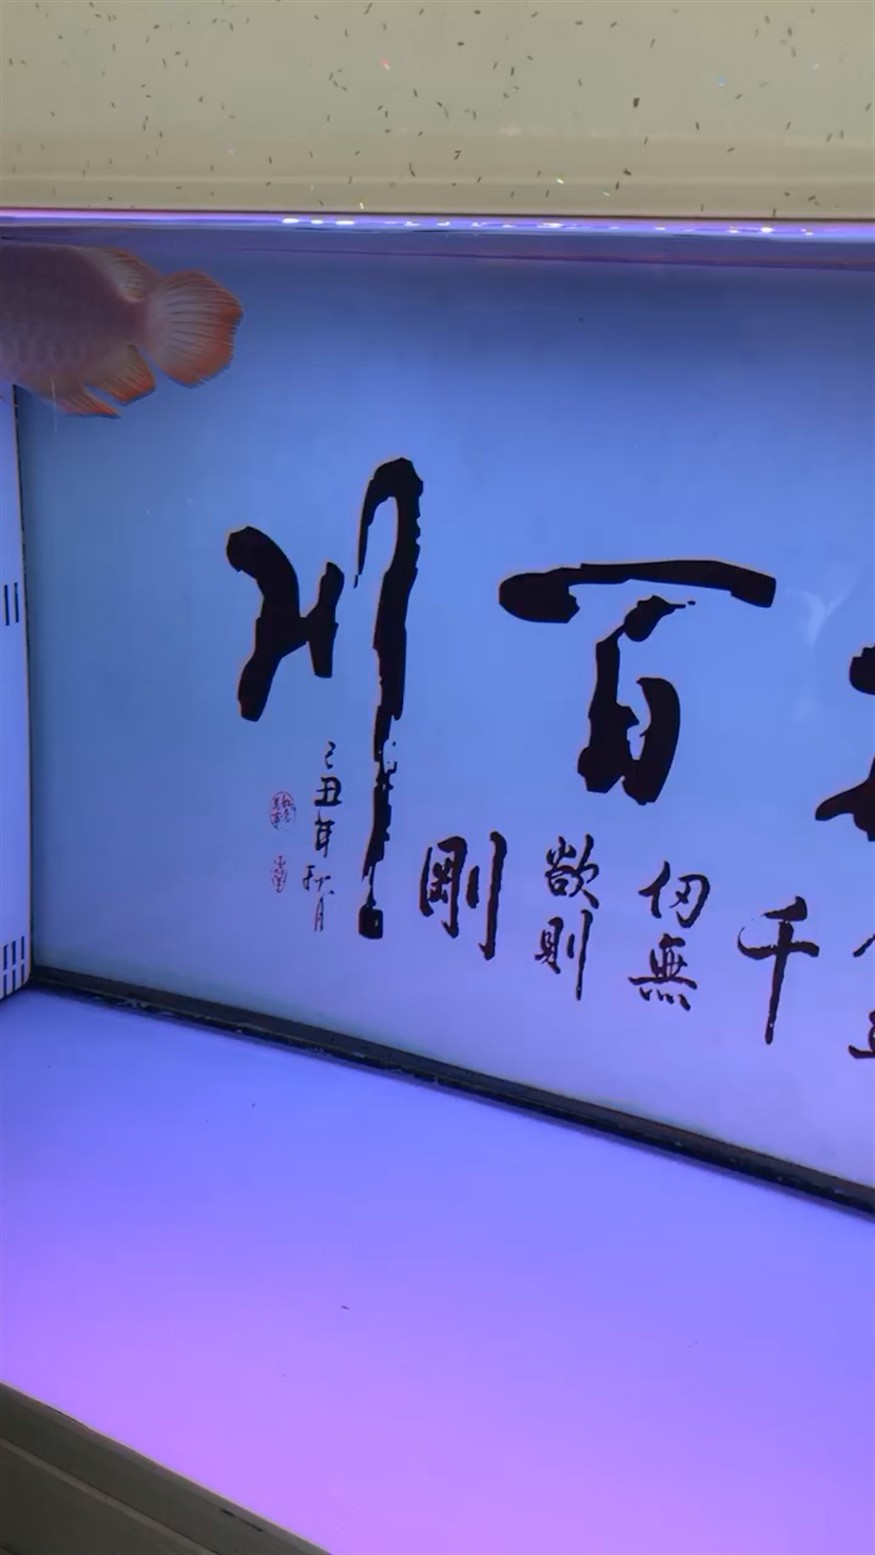 百川
千
仞無
欲則
剛
己丑年
秋月